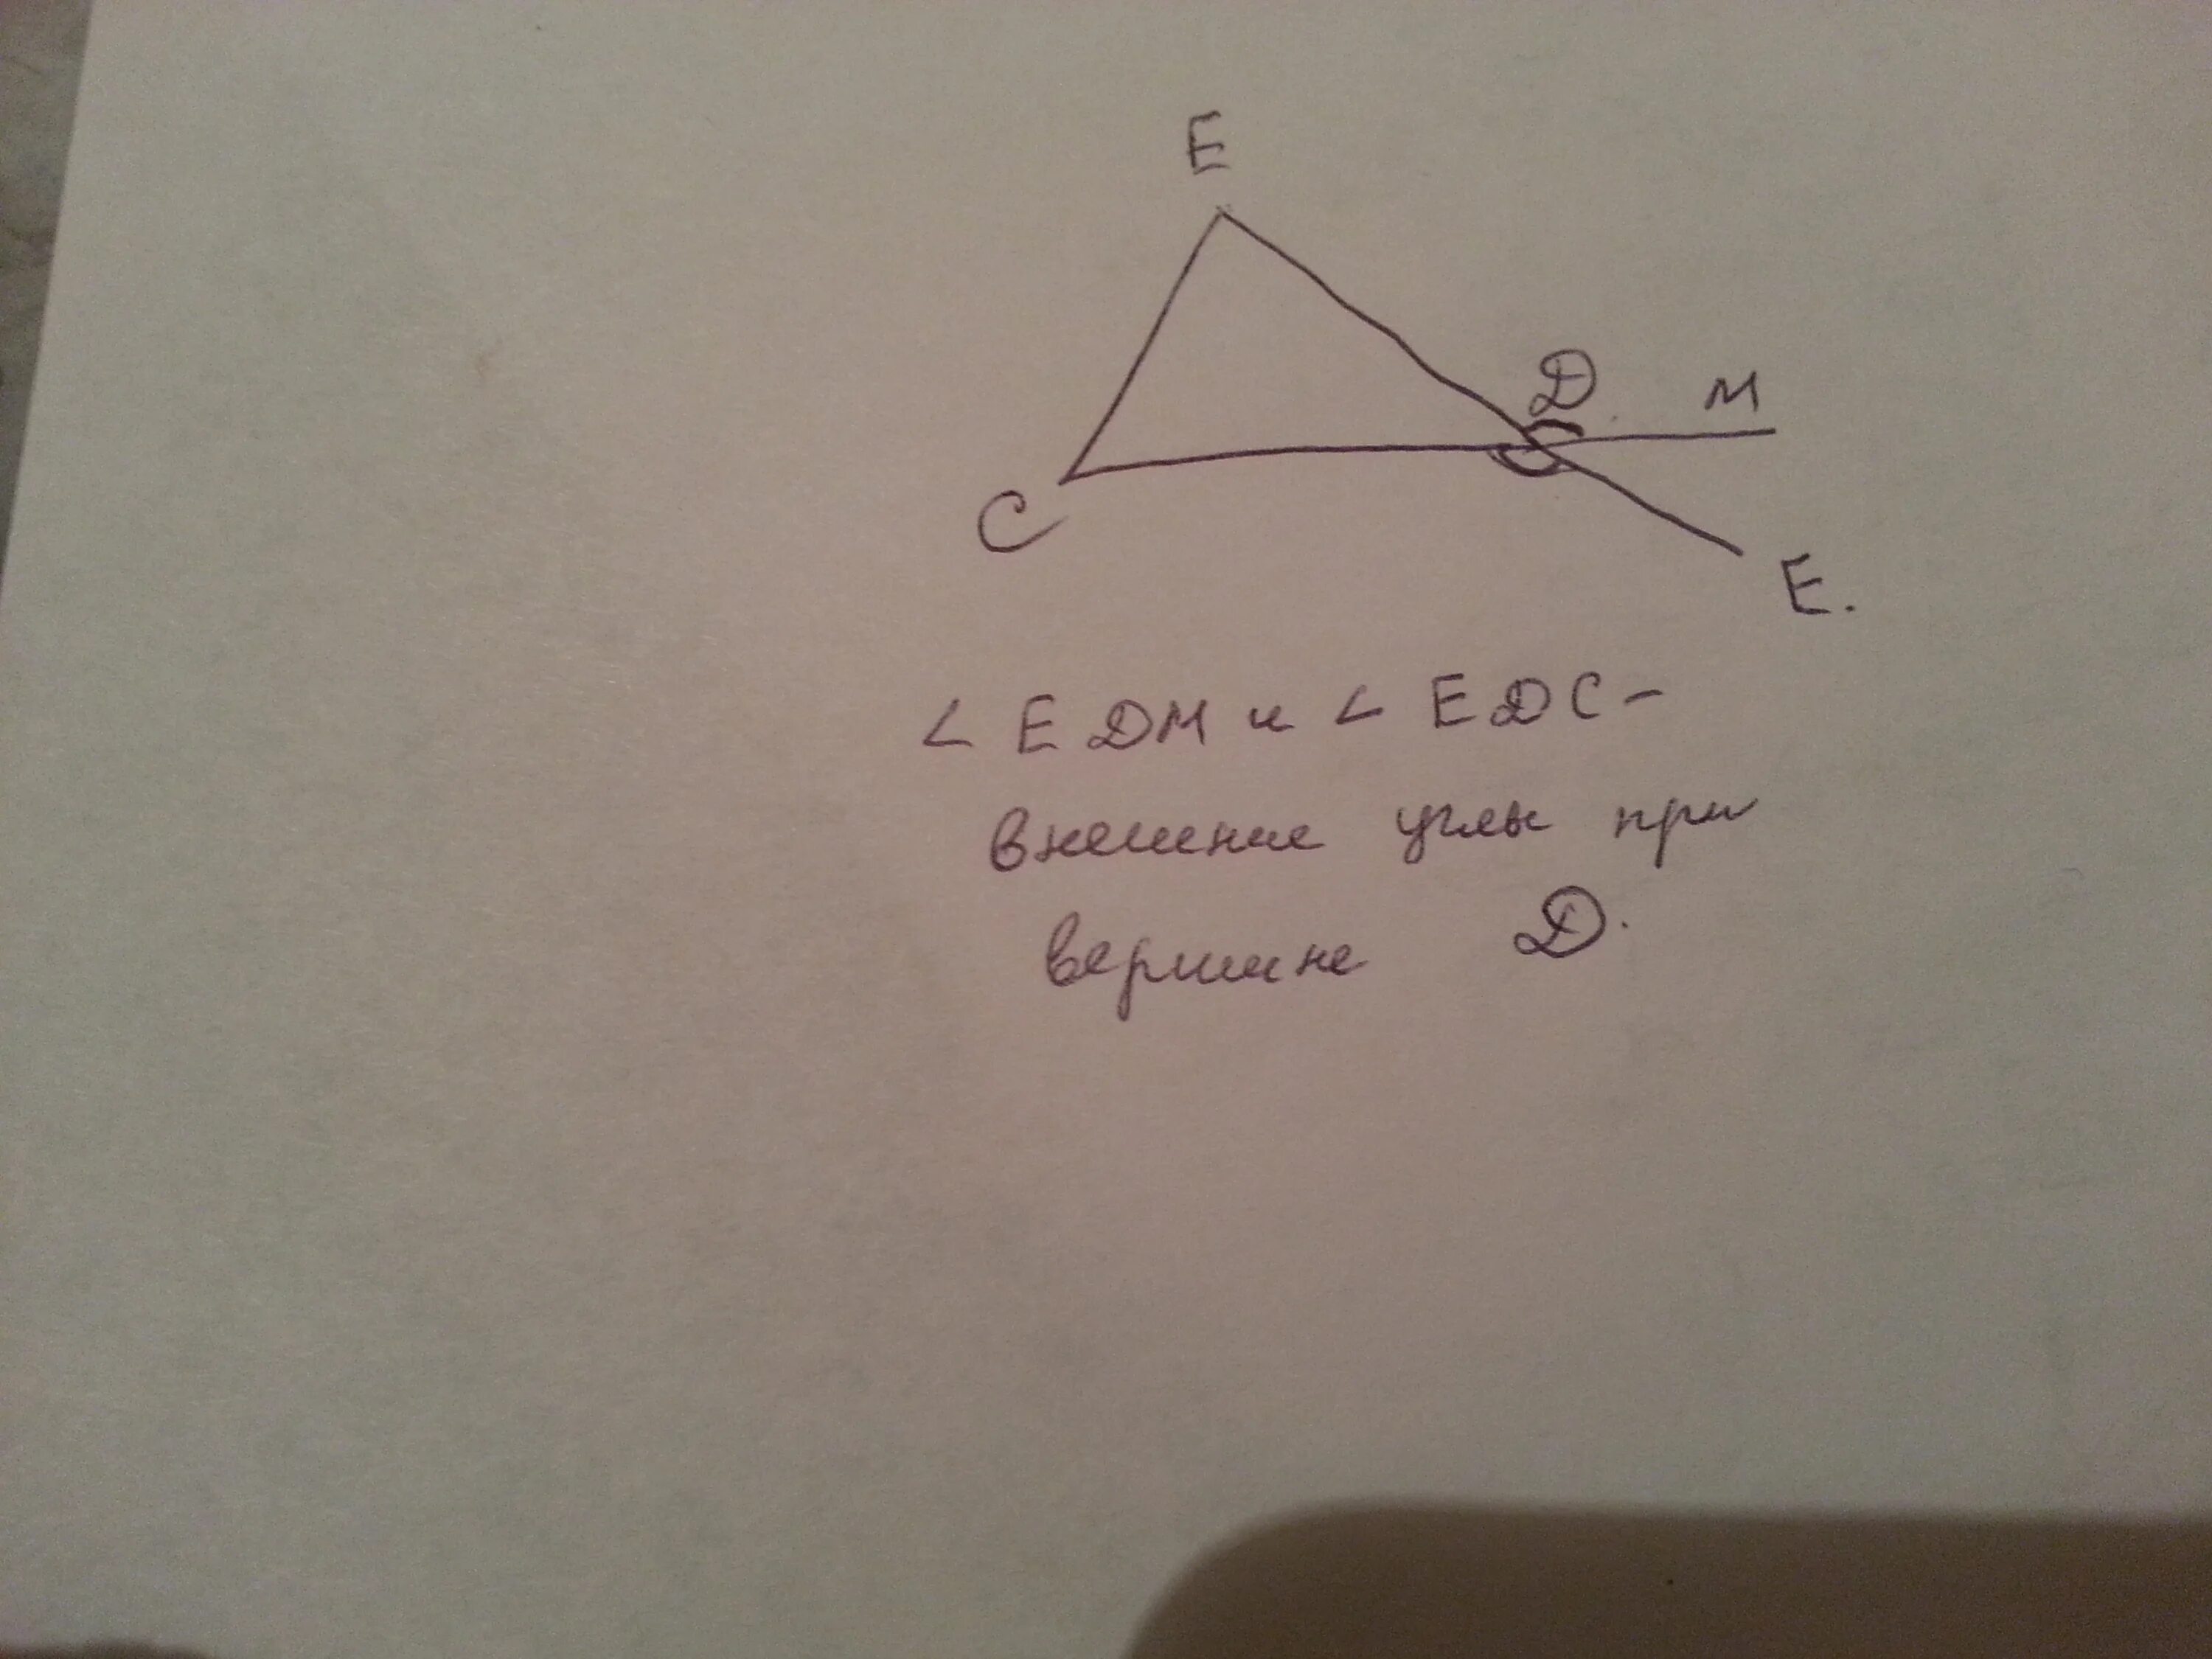 E
D M
C
E.
< EDM и < EDC -
внешние углы при
вершине D.